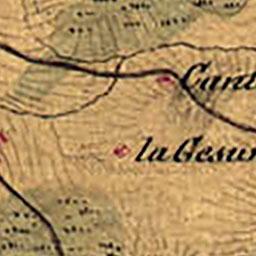 Cant
la Gesur